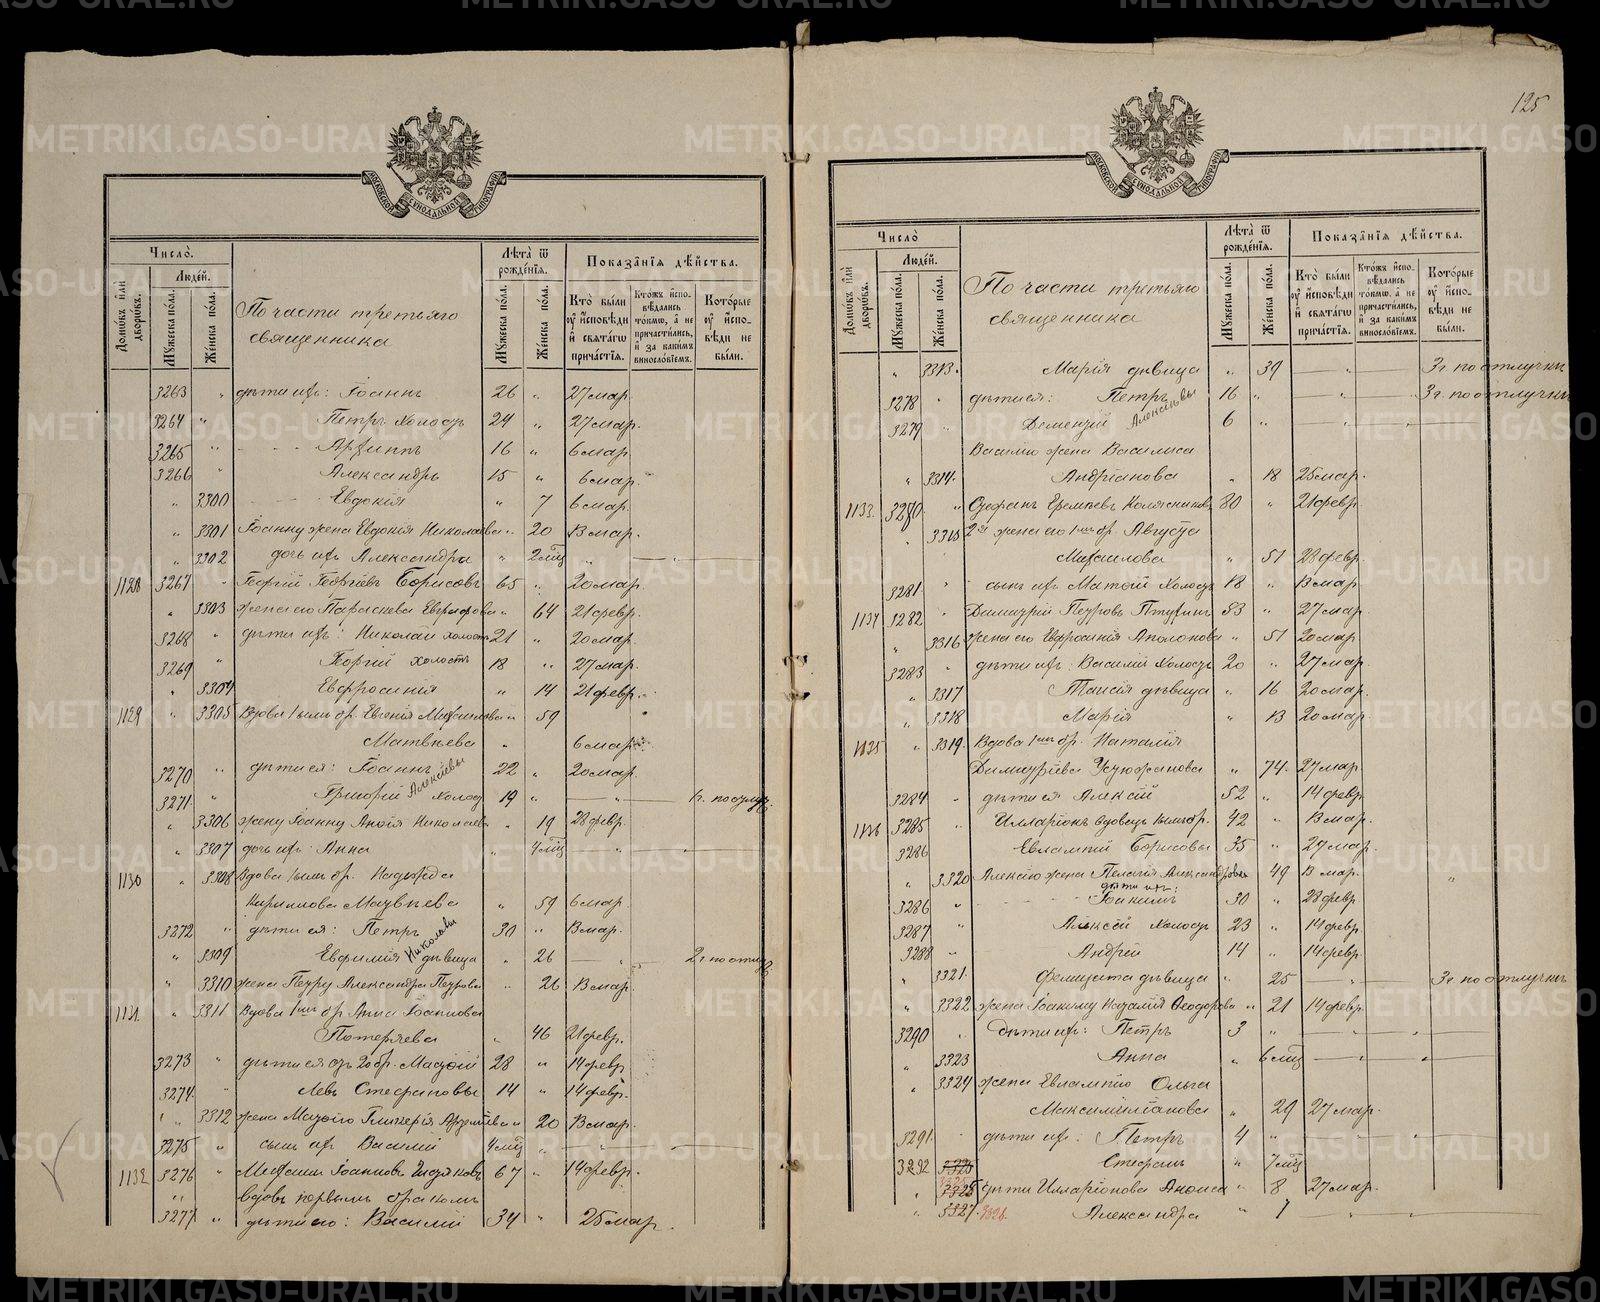 125
МОСКОВСКОЙ СѴНОДАЛЬНОЙ ТИПОГРАФІИ
Число̀.
Людей.
Домѡвъ и҆лѝ дворѡвъ.
Мꙋжеска по́ла.
Же́нска по́ла.
По части третьяго
священника
Лѣта̀ ѿ рожде́нїя.
Мꙋжеска по́ла.
Же́нска по́ла.
Показа̑нїѧ дѣ́йства.
Кто̀ бы́ли оу҆ и҆сповѣди и҆ свѧта́гѡ прича́стїѧ.
Кто́жъ и҆спо-вѣдались то́кмѡ, а҆ не причасти́лись, и҆ за каки́мъ винословїемъ.
Кото́рые оу҆ и҆спо-вѣди не бы́ли.
3263 " дѣти ихъ: Іоаннъ 26 " 27 мар.
3264 " Петръ холостъ 24 " 27 мар.
3265 " Архиппъ 16 " 6 мар.
3266 Александръ 15 " 6 мар.
" 3300 Евдокія " 7 6 мар.
" 3301 Іоанну жена Евдокія Николаева " 20 13 мар.
" 3302 дочь ихъ Александра " 2 мѣц " — " —
1128 3267 " Георгій Георгіевъ Борисовъ 65 " 20 мар.
" 3303 жена его Параскева " 64 21 февр.
3268 " дѣти ихъ: Николай холостъ 21 " 20 мар.
3269 " Георгій холостъ 18 " 27 мар.
" 3304 Евфросинія " 14 21 февр.
1129 " 3305 Вдова 1ымъ бр. Евгенія Михаилова " 59
Матвѣева " 6 мар.
3270 " дѣти ея: Іоаннъ 22 " 20 мар.
3271 " Григорій Алексѣевы холост 19 " — " — 1 г.
" 3306 жену Іоанну Анисія Николаева " 19 28 февр.
" 3307 дочь ихъ Анна " 4 мѣц — " — "
1130 " 3308 Вдова 1ымъ бр. Надежда
Кириллова Матвѣева " 59 6 мар.
3272 " дѣти ея: Петръ 30 " 13 мар.
" 3309 Евфимія Николаевы дѣвица " 26 — " — 2 г. по отлуч.
" 3310 жена Петру Александра Петрова " 26 13 мар.
1131 " 3311 Вдова 1ымъ бр. Анна Іоаннова
Потеряева " 46 21 февр.
3273 " дѣти ея отъ 2о бр. Матѳій 28 " 14 февр.
3274 " Левъ Стефановы 14 " 14 февр.
" 3312 жена Матѳію Гликерія " 20 13 мар.
3275 " сынъ ихъ Василій 4 мѣц — " — "
1132 3276 " Іоанновъ 67 " 14 февр.
" вдовъ первымъ бракомъ
3277 " дѣти его: Василій 34 " 25 мар.
Число̀
Людей.
Домѡвъ и҆лѝ дворѡвъ.
Мꙋжеска по́ла.
Же́нска по́ла.
По части третьяго
священника
Лѣта̀ ѿ рожде́нїя.
Мꙋжеска по́ла.
Же́нска по́ла.
Показа̑нїѧ дѣ́йства.
Кто̀ бы́ли оу҆ и҆сповѣди и҆ свѧта́гѡ прича́стїѧ.
Кто́жъ и҆спо-вѣдались то́кмѡ, а҆ не причасти́лись, и҆ за каки́мъ винословїемъ.
Кото́рые оу҆ и҆спо-вѣди не бы́ли.
" 3313. Марія дѣвица " 39 — " — 3 г. по отлучки
3278 " дѣти ея: Петръ 16 " — " — 3 г. по отлучки
3279 " Алексѣевы 6 " — " — "
Василію жена Василиса
" 3314. Андріанова " 18 25 мар.
1133. 3280. " Стефанъ Еремѣевъ Колясниковъ 80 " 21 февр.
" 3315 2ая жена его 1ымъ бр. Августа
Михаилова " 51 28 февр.
3281 " сынъ ихъ Матѳій холостъ 18 " 13 мар.
1134 3282 " Димитрій Петровъ Птухинъ 53 " 27 мар.
" 3316 жена его Евфросинія Аполонова " 51 20 мар.
3283 " дѣти ихъ: Василій холостъ 20 " 27 мар.
" 3317 Таисія дѣвица " 16 20 мар.
" 3318 Марія " 13 20 мар.
1135 " 3319. Вдова 1ымъ бр. Наталія
Димитріева Устюжанова " 74. 27 мар.
3284 " дѣти ея Алексій 52 " 14 февр.
1136 3285 " Илларіонъ вдовецъ 1ымъ бр. 42 " 13 мар.
3286 Евлампій Борисовы 35 " 27 мар.
" 3320 Алексію жена Пелагія Александрова 49 13 мар. "
дѣти ихъ:
3286 " Іоакимъ 30 " 28 февр.
3287 " Алексій холостъ 23 " 14 февр.
3288 " Андрей 14 " 14 февр.
" 3321. Фелицата дѣвица " 25 — " — 3 г. по отлучкѣ
" 3322 жена Іоакиму Наталія Ѳеодорова " 21 14 февр.
3290 " Дѣти ихъ: Петръ 3 " — " — "
" 3323 Анна " 6 мѣц — " — "
" 3324 жена Евлампію Ольга
Максимиліанова " 29 27 мар.
3291. " дѣти ихъ: Петръ 4 " — " — "
3292 3325 Стефанъ " 7 мѣц
" 3325 дѣти Илларіонова Аниса " 8 27 мар.
" 3327. 3326. Александра " 1 — " — "
METRIKI.GASO-URAL.RU